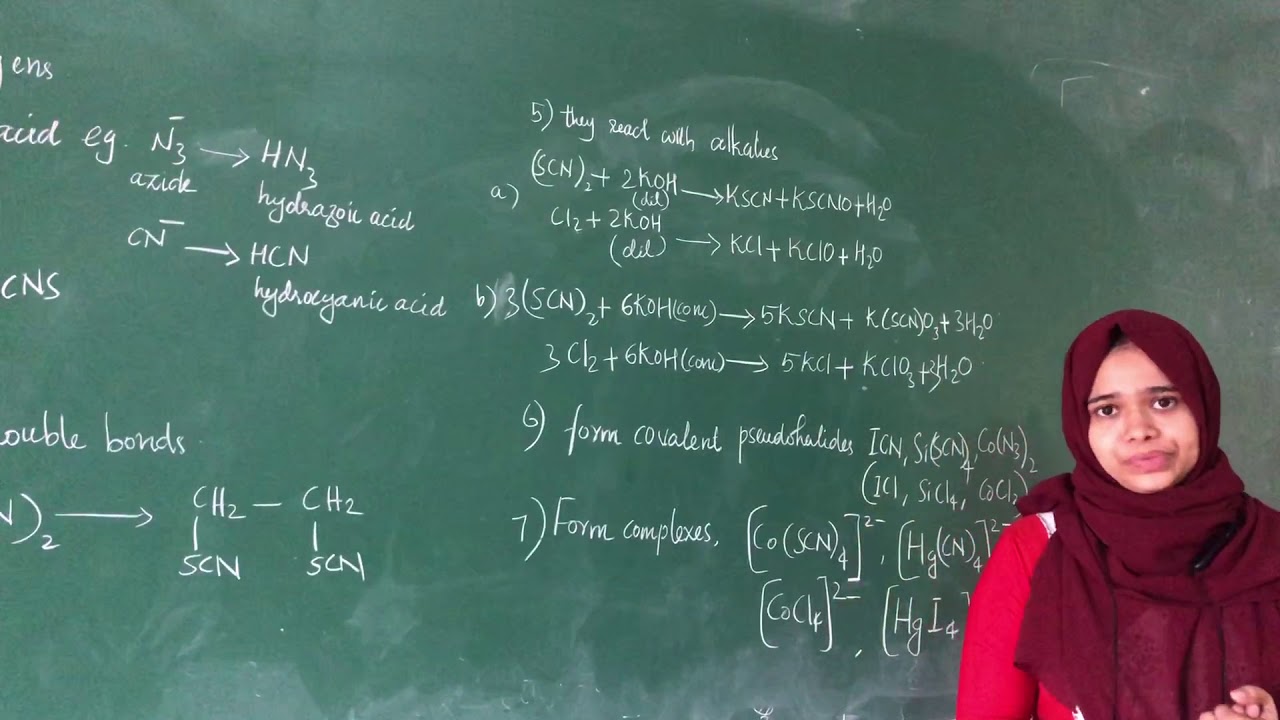 ens
acid eg. N₃⁻ → HN₃
azide hydrazoic acid
CN⁻ → HCN
hydrocyanic acid
CNS
ouble bonds
N)₂ → CH₂ — CH₂
| |
SCN SCN
5) they react with alkalies
a) (SCN)₂ + 2KOH (dil) → KSCN + KSCNO + H₂O
Cl₂ + 2KOH (dil) → KCl + KClO + H₂O
b) 3(SCN)₂ + 6KOH(conc) → 5KSCN + K(SCN)O₃ + 3H₂O
3Cl₂ + 6KOH(conc) → 5KCl + KClO₃ + 3H₂O
6) form covalent pseudohalides ICN, Si(SCN)₄, Co(N₃)₂
(ICl, SiCl₄, CoCl₂
7) Form complexes, [Co(SCN)₄]²⁻, [Hg(CN)₄]²⁻
[CoCl₄]²⁻, [HgI₄]